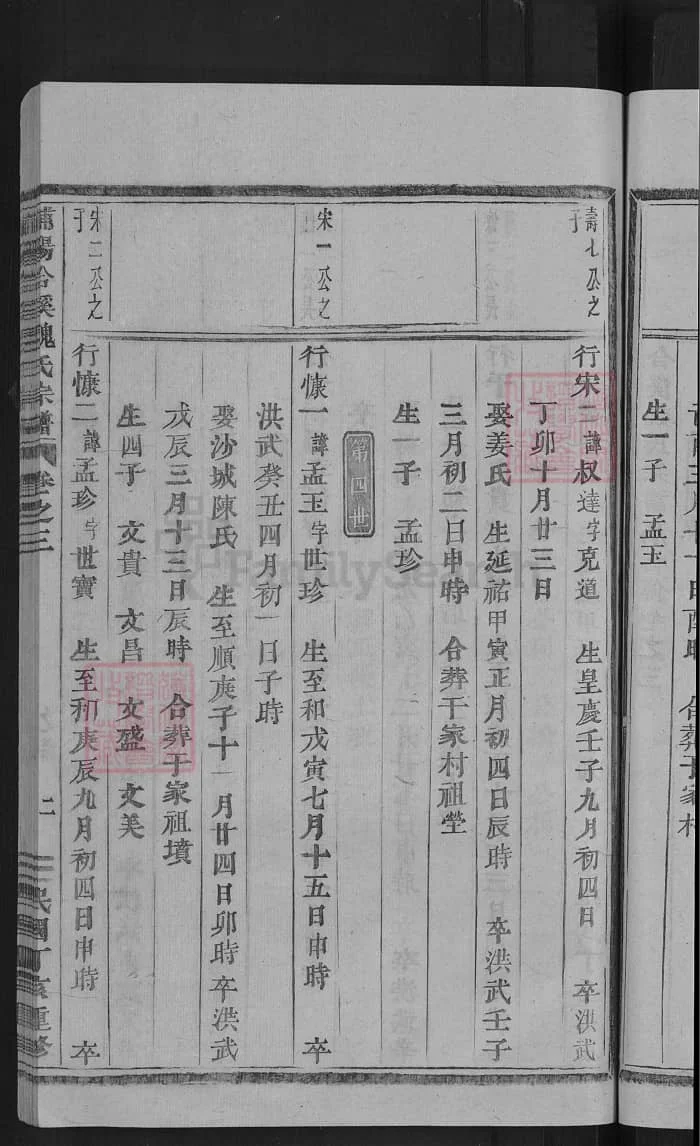 生一子 孟玉
壽七公之
于
行宋二諱叔達字克道 生皇慶壬子九月初四日 卒洪武
丁卯十月廿三日
娶姜氏 生延祐甲寅正月初四日辰時 卒洪武壬子
三月初二日申時 合葬于家村祖塋
生一子 孟珍
第四世
宋一公之
行慷一諱孟玉字世珍 生至和戊寅七月十五日申時 卒
洪武癸丑四月初一日子時
娶沙城陳氏 生至順庚子十一月廿四日卯時 卒洪武
戊辰三月十三日辰時 合葬于家祖墳
生四子 文貴 文昌 文盛 文美
宋二公之
于
行慷二諱孟珍字世寳 生至和庚辰九月初四日申時 卒
魏氏宗譜 卷之三 二 民國丁亥重修
FamilySearch